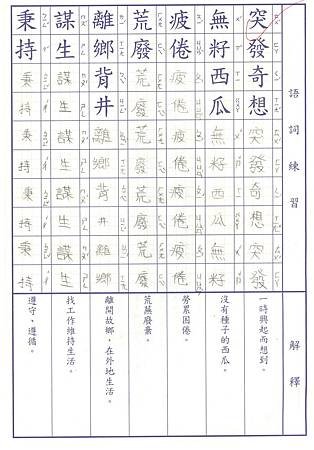 語詞練習 解釋
突發奇想突發奇想突發
一時興起而想到。
無籽西瓜無籽西瓜無籽
沒有種子的西瓜。
疲倦疲倦疲倦疲倦疲倦
勞累困倦。
荒廢荒廢荒廢荒廢荒廢
荒蕪廢棄。
離鄉背井離鄉背井離鄉
離開故鄉，在外地生活。
謀生謀生謀生謀生謀生
找工作維持生活。
秉持秉持秉持秉持秉持
遵守、遵循。